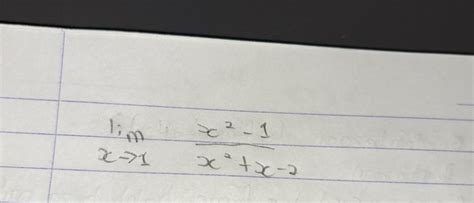 lim x² - 1
x→1 x² + x - 2